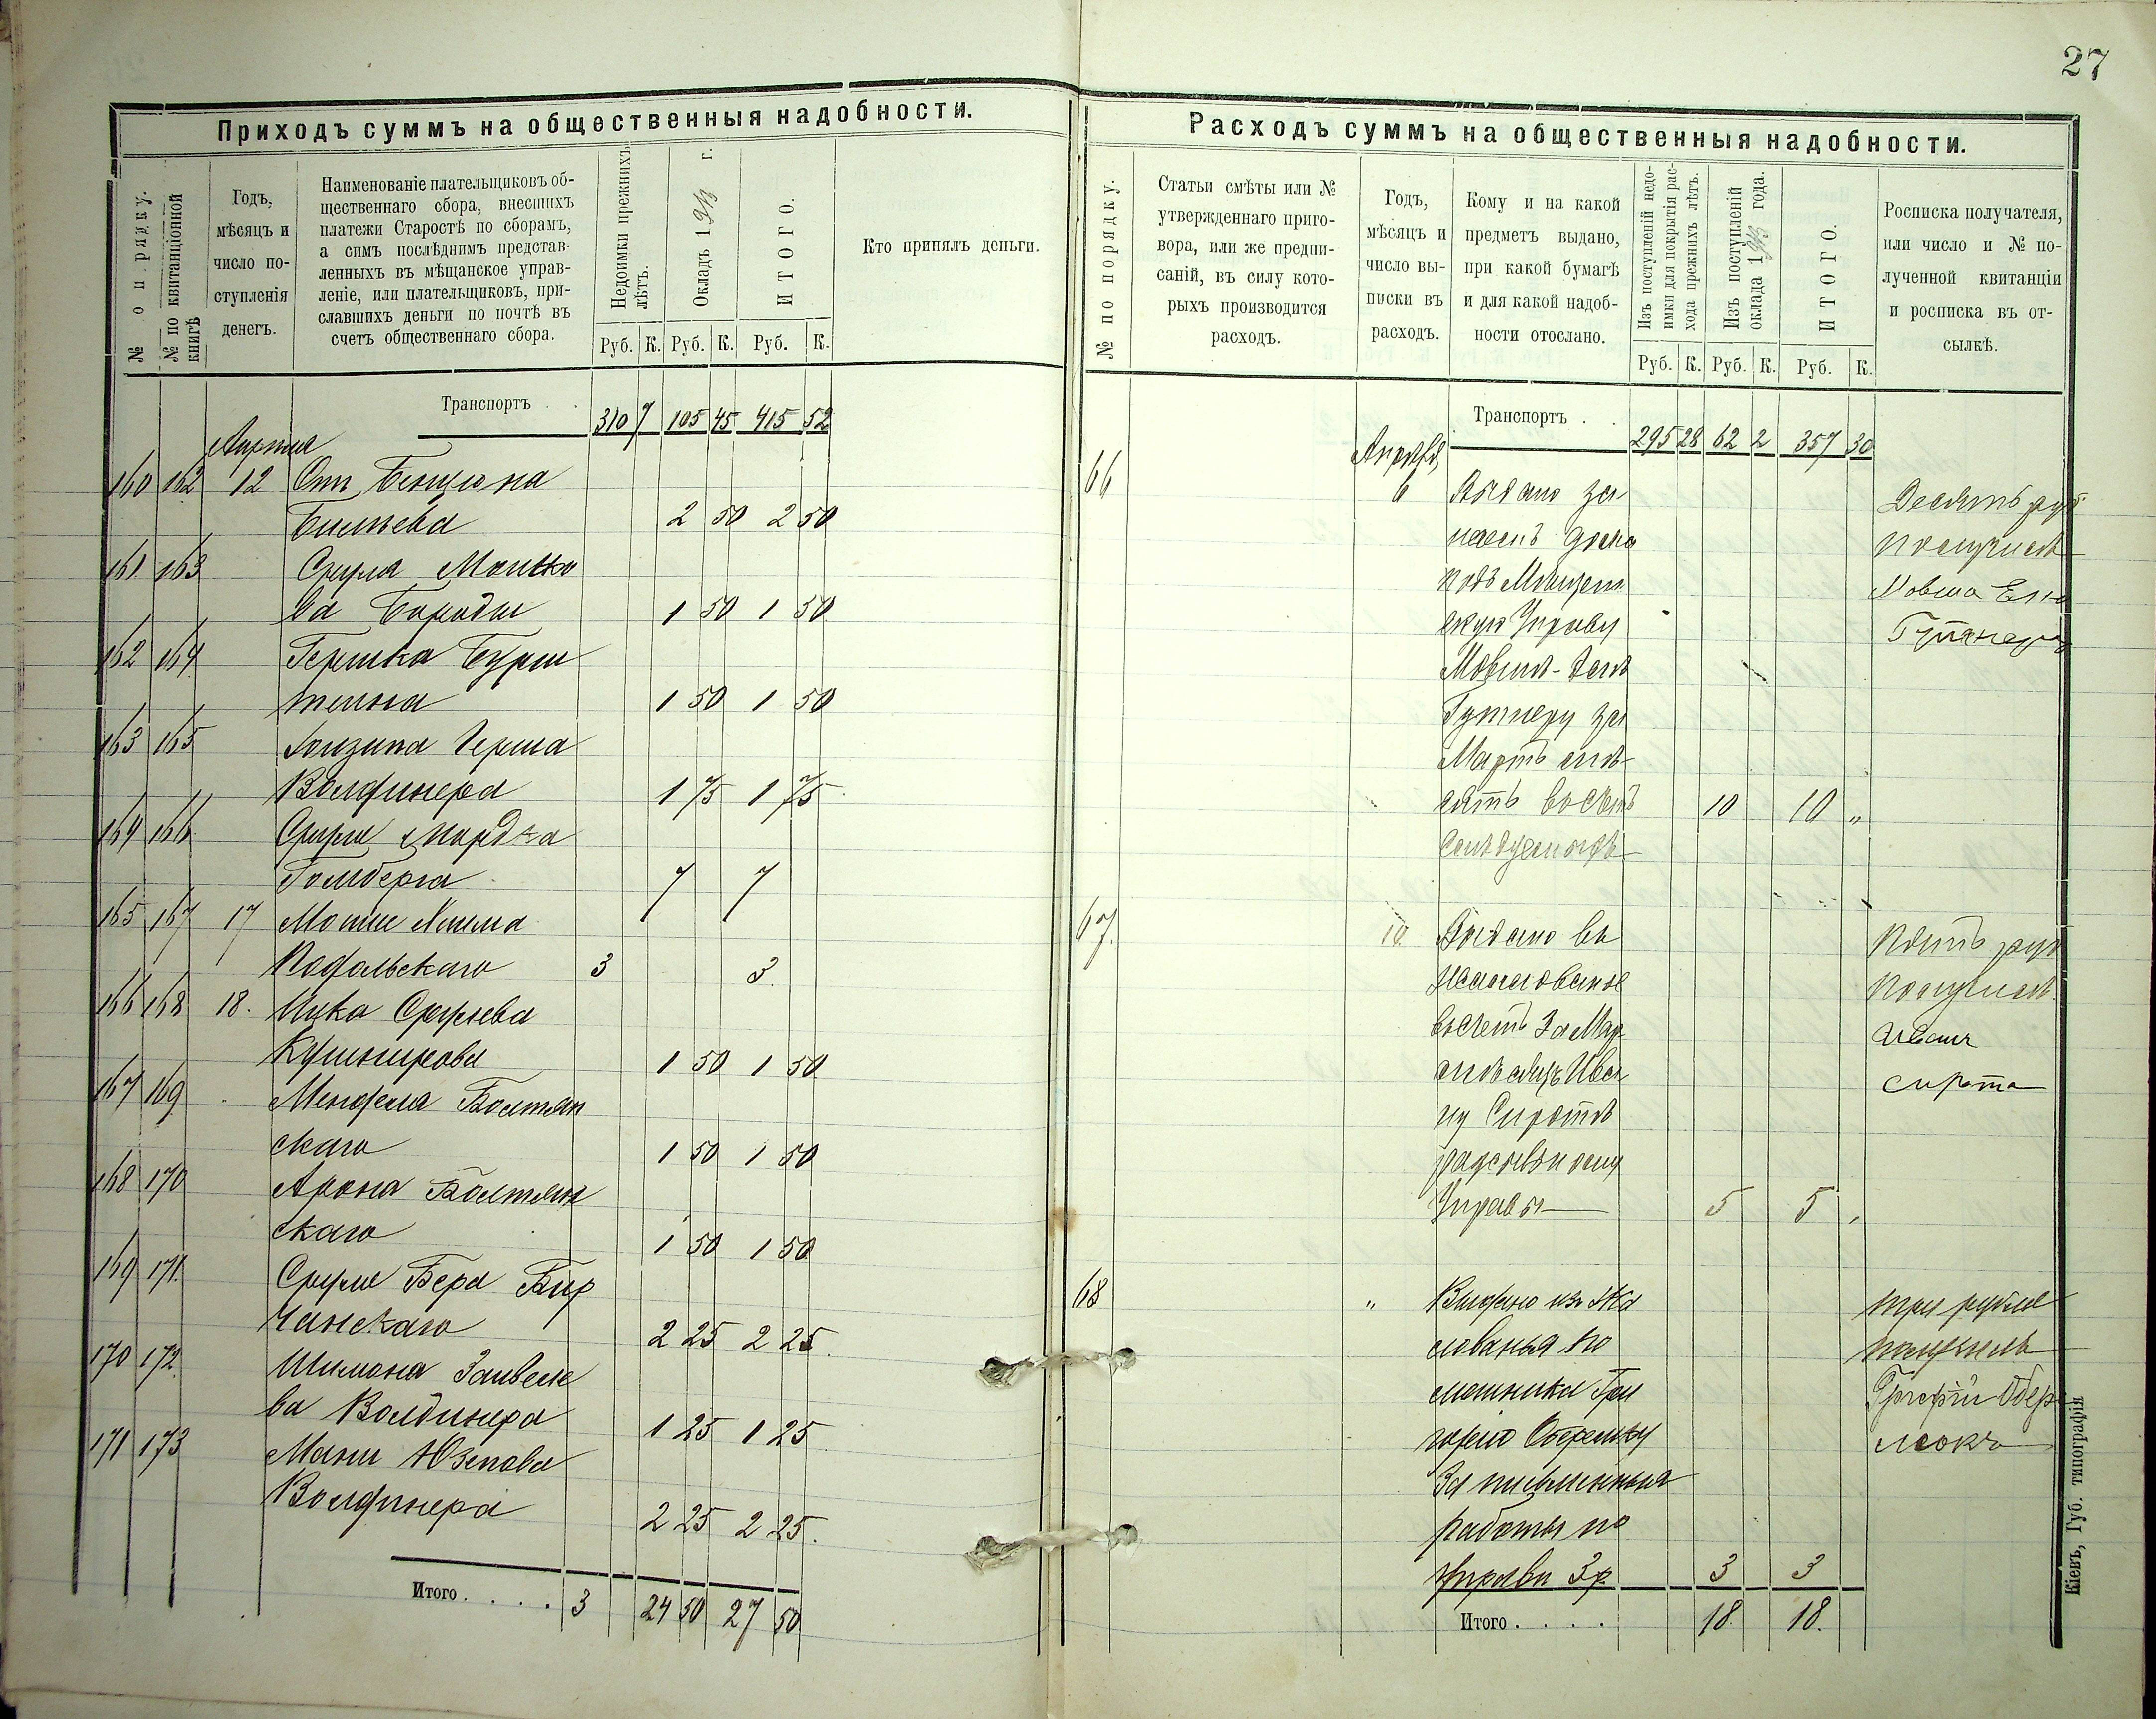 27
Приходъ суммъ на общественныя надобности.
№ п о рядку.
№ по квитанціонной книгѣ
Годъ,
мѣсяцъ и
число по-
ступленія
денегъ.
Наименованіе плательщиковъ об-
щественнаго сбора, внесшихъ
платежи Старостѣ по сборамъ,
а симъ послѣднимъ представ-
ленныхъ въ мѣщанское управ-
леніе, или плательщиковъ, при-
славшихъ деньги по почтѣ въ
счетъ общественнаго сбора.
Недоимки прежнихъ
лѣтъ.
Окладъ 1913 г.
ИТОГО.
Кто принялъ деньги.
Руб. К. Руб. К. Руб. К.
Транспортъ . . 310 7 105 45 415 52
160 162 12 От Бенціона
2 50 2 50
161 163 Срула Мошко
ва Бороды 1 50 1 50
162 164 Гершка Бурш
тейна 1 50 1 50
163 165 Герша
Волдинера 1 75 1 75
164 166 Сруля Мордка
Голдберга 7 7
165 167 17 Мошки Хаима
Подольскаго 3 3.
166 168 18. Ицка Срулева
Кушнирова 1 50 1 50
167 169 Менделя Болтян
скаго 1 50 1 50
168 170 Арона Болтян
скаго 1 50 1 50
169 171. Сруля Бера Бир
чанскаго 2 25 2 25.
170 172. Шимона Зайвеле
ва Волдинера 1 25 1 25
171 173 Мани Юзепова
Волдинера 2 25 2 25.
Итого. . . . 3 24 50 27 50
Расходъ суммъ на общественныя надобности.
№ по порядку.
Статьи смѣты или №
утвержденнаго приго-
вора, или же предпи-
саній, въ силу кото-
рыхъ производится
расходъ.
Годъ,
мѣсяцъ и
число вы-
писки въ
расходъ.
Кому и на какой
предметъ выдано,
при какой бумагѣ
и для какой надоб-
ности отослано.
Изъ поступленій недо-
имки для покрытія рас-
хода прежнихъ лѣтъ.
Изъ поступленій
оклада 1913 года.
ИТОГО.
Росписка получателя,
или число и № по-
лученной квитанціи
и росписка въ от-
сылкѣ.
Руб. К. Руб. К. Руб. К.
Транспортъ . . 295 28 62 2 357 30
Апрѣля
66 6 Выдано за
наемъ дома
подъ Мѣщан
скую Управу
Мовшѣ-Елѣ
Гутнеру за
Мартъ мѣ-
сяцъ въ счетъ 10 10 "
Десять руб
получилъ
Мовша Еля
Гутнеръ
67. 10. Выдано въ
жалованье
въ счетъ За Мар
мѣсяцъ Ива
ну Сиротѣ
разсыльному
Управы 5 5
Пять руб
получилъ
Иванъ
Сирота
68 " Видано изъ жа
лованья по
мошника Гри
горію
За письменныя
работы по
управи 3 р 3 3
три рубля
получилъ
Итого. . . . 18. 18.
Кіевъ, Губ. типографія